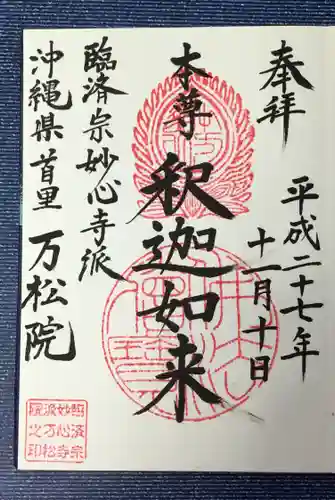 奉拝
平成二十七年
十一月十日
本尊
釈迦如来
臨済宗妙心寺派
沖縄県首里
万松院
臨済宗
妙心寺
派万松
院之印